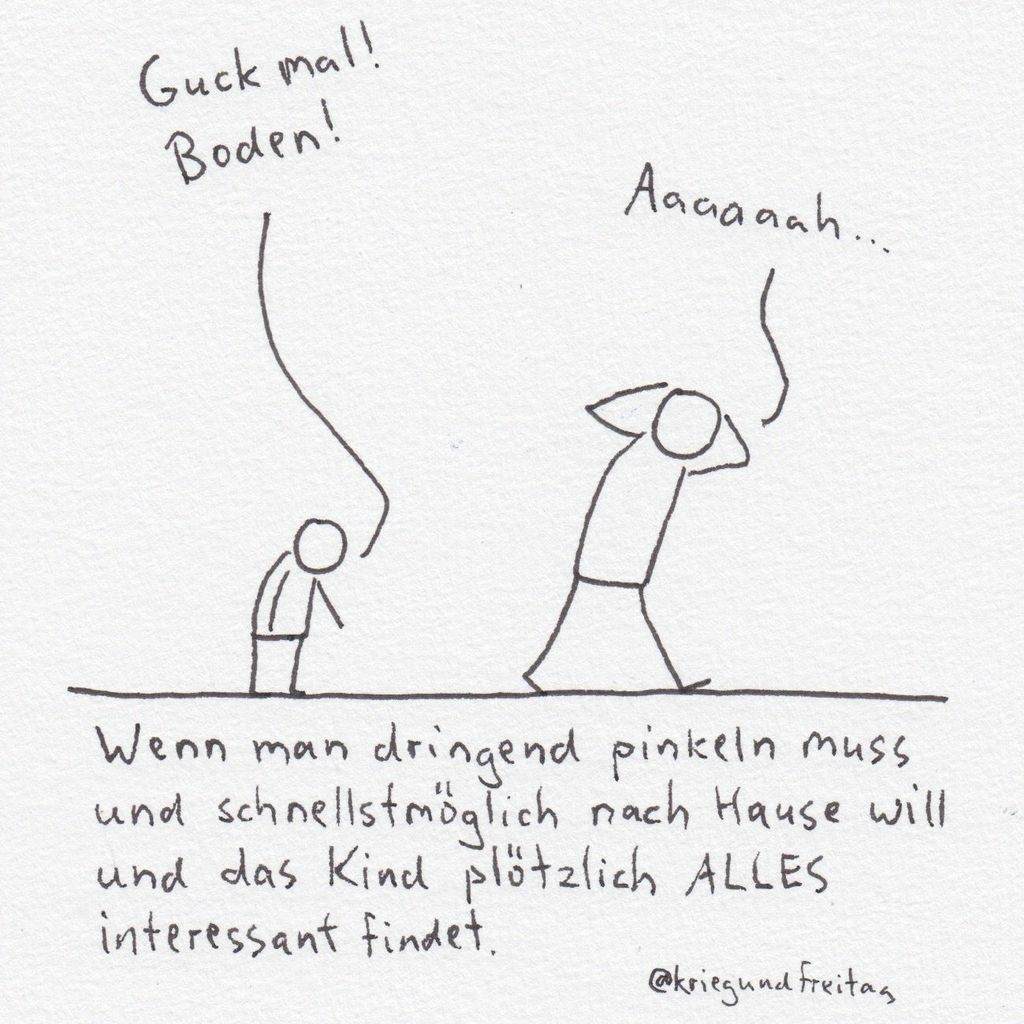 Guck mal!
Boden!
Aaaaaah...
Wenn man dringend pinkeln muss
und schnellstmöglich nach Hause will
und das Kind plötzlich ALLES
interessant findet.
@kriegundfreitag